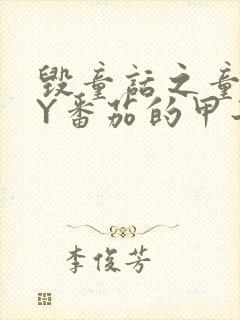 毁童话之童
Y番茄的甲
李俊芳